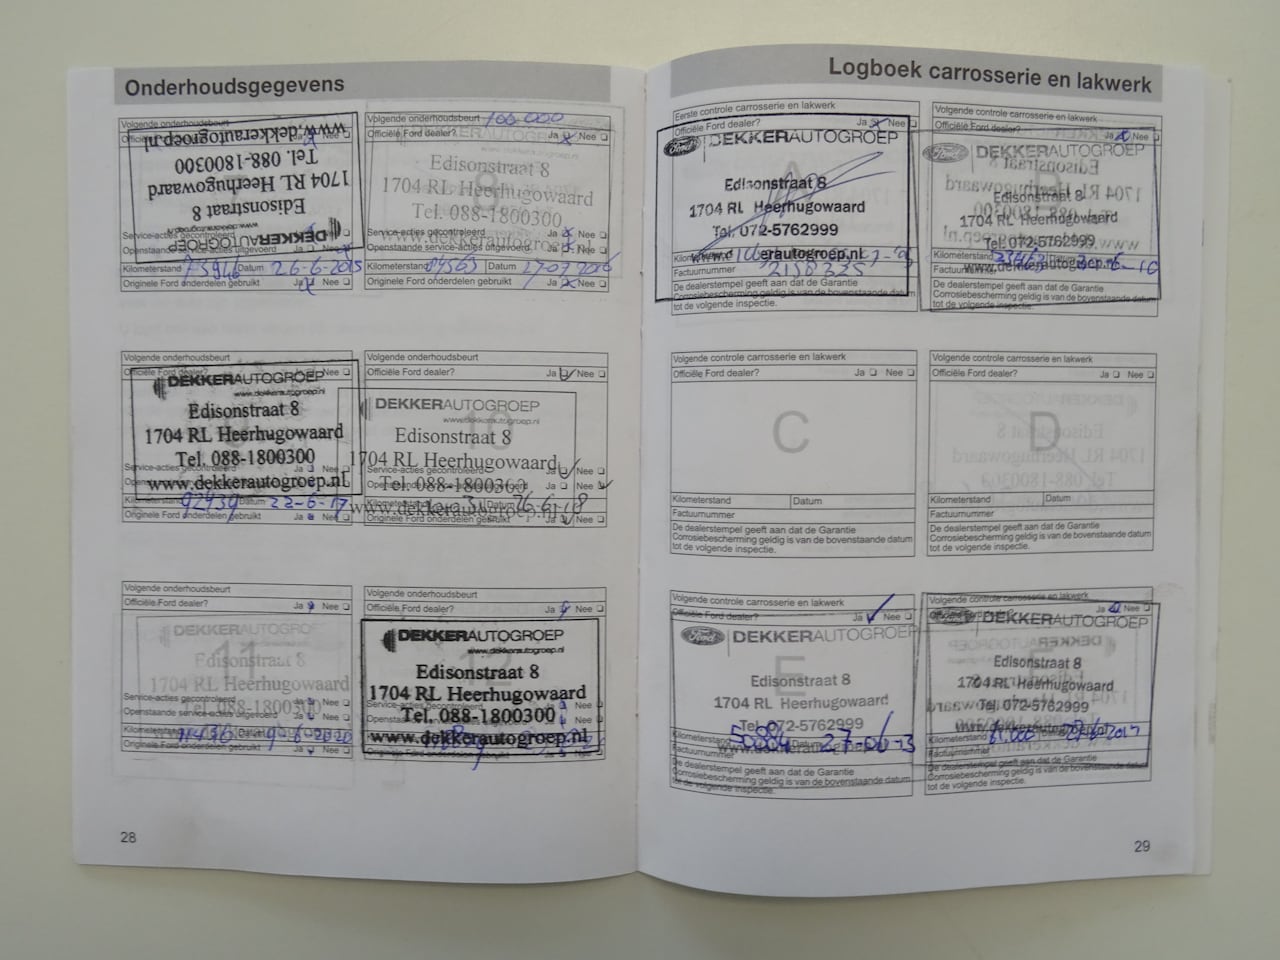 Onderhoudsgegevens
Volgende onderhoudsbeurt
www.dekkerautogroep.nl
Tel. 088-1800300
1704 RL Heerhugowaard
Edisonstraat 8
www.dekkerautogroep.nl
DEKKERAUTOGROEP
Service-acties gecontroleerd
Openstaande service-acties uitgevoerd Ja Nee
Kilometerstand 75946 Datum 26-6-2015
Originele Ford onderdelen gebruikt Ja Nee
Volgende onderhoudsbeurt 100.000
Officiële Ford dealer? Ja Nee
Edisonstraat 8
1704 RL Heerhugowaard
Tel. 088-1800300
Service-acties gecontroleerd Ja Nee
www.dekkerautogroep.nl
Openstaande service-acties uitgevoerd Ja Nee
Kilometerstand 84563 Datum
Originele Ford onderdelen gebruikt Ja Nee
Volgende onderhoudsbeurt
Officiële Ford dealer? Ja Nee
DEKKERAUTOGROEP
www.dekkerautogroep.nl
Edisonstraat 8
1704 RL Heerhugowaard
Tel. 088-1800300
Service-acties gecontroleerd Ja Nee
www.dekkerautogroep.nl
Kilometerstand 92439 Datum 22-6-17
Originele Ford onderdelen gebruikt Ja Nee
Volgende onderhoudsbeurt
Officiële Ford dealer? Ja Nee
DEKKERAUTOGROEP
www.dekkerautogroep.nl
10
Edisonstraat 8
1704 RL Heerhugowaard
Service-acties gecontroleerd Ja Nee
Tel. 088-1800300
Kilometerstand Datum 26-6-18
www.dekkerautogroep.nl
Originele Ford onderdelen gebruikt Ja Nee
Volgende onderhoudsbeurt
Officiële Ford dealer? Ja Nee
DEKKERAUTOGROEP
11
Edisonstraat 8
1704 RL Heerhugowaard
Service-acties gecontroleerd Ja Nee
Tel. 088-1800300
Openstaande service-acties uitgevoerd Ja Nee
Kilometerstand Datum
Originele Ford onderdelen gebruikt Ja Nee
Volgende onderhoudsbeurt
Officiële Ford dealer? Ja Nee
DEKKERAUTOGROEP
www.dekkerautogroep.nl
12
Edisonstraat 8
1704 RL Heerhugowaard
Service-acties gecontroleerd
Tel. 088-1800300
www.dekkerautogroep.nl
28
Logboek carrosserie en lakwerk
Eerste controle carrosserie en lakwerk
Officiële Ford dealer? Ja Nee
Ford DEKKERAUTOGROEP
Edisonstraat 8
1704 RL Heerhugowaard
Tel. 072-5762999
www.dekkerautogroep.nl
Factuurnummer 2158325
De dealerstempel geeft aan dat de Garantie
Corrosiebescherming geldig is van de bovenstaande datum
tot de volgende inspectie.
Volgende controle carrosserie en lakwerk
Officiële Ford dealer? Ja Nee
Ford DEKKERAUTOGROEP
Edisonstraat 8
1704 RL Heerhugowaard
Tel. 072-5762999
Kilometerstand
www.dekkerautogroep.nl
Factuurnummer
De dealerstempel geeft aan dat de Garantie
Corrosiebescherming geldig is van de bovenstaande datum
tot de volgende inspectie.
Volgende controle carrosserie en lakwerk
Officiële Ford dealer? Ja Nee
C
Kilometerstand Datum
Factuurnummer
De dealerstempel geeft aan dat de Garantie
Corrosiebescherming geldig is van de bovenstaande datum
tot de volgende inspectie.
Volgende controle carrosserie en lakwerk
Officiële Ford dealer? Ja Nee
D
Kilometerstand Datum
Factuurnummer
De dealerstempel geeft aan dat de Garantie
Corrosiebescherming geldig is van de bovenstaande datum
tot de volgende inspectie.
Volgende controle carrosserie en lakwerk
Officiële Ford dealer? Ja Nee
Ford DEKKERAUTOGROEP
E
Edisonstraat 8
1704 RL Heerhugowaard
Tel. 072-5762999
Kilometerstand 50884 Datum 27-06-13
www.dekkerautogroep.nl
Factuurnummer
De dealerstempel geeft aan dat de Garantie
Corrosiebescherming geldig is van de bovenstaande datum
tot de volgende inspectie.
Volgende controle carrosserie en lakwerk
Ja Nee
DEKKERAUTOGROEP
F
Edisonstraat 8
1704 RL Heerhugowaard
Tel. 072-5762999
Kilometerstand
Factuurnummer
De dealerstempel geeft aan dat de Garantie
Corrosiebescherming geldig is van de bovenstaande datum
tot de volgende inspectie.
29